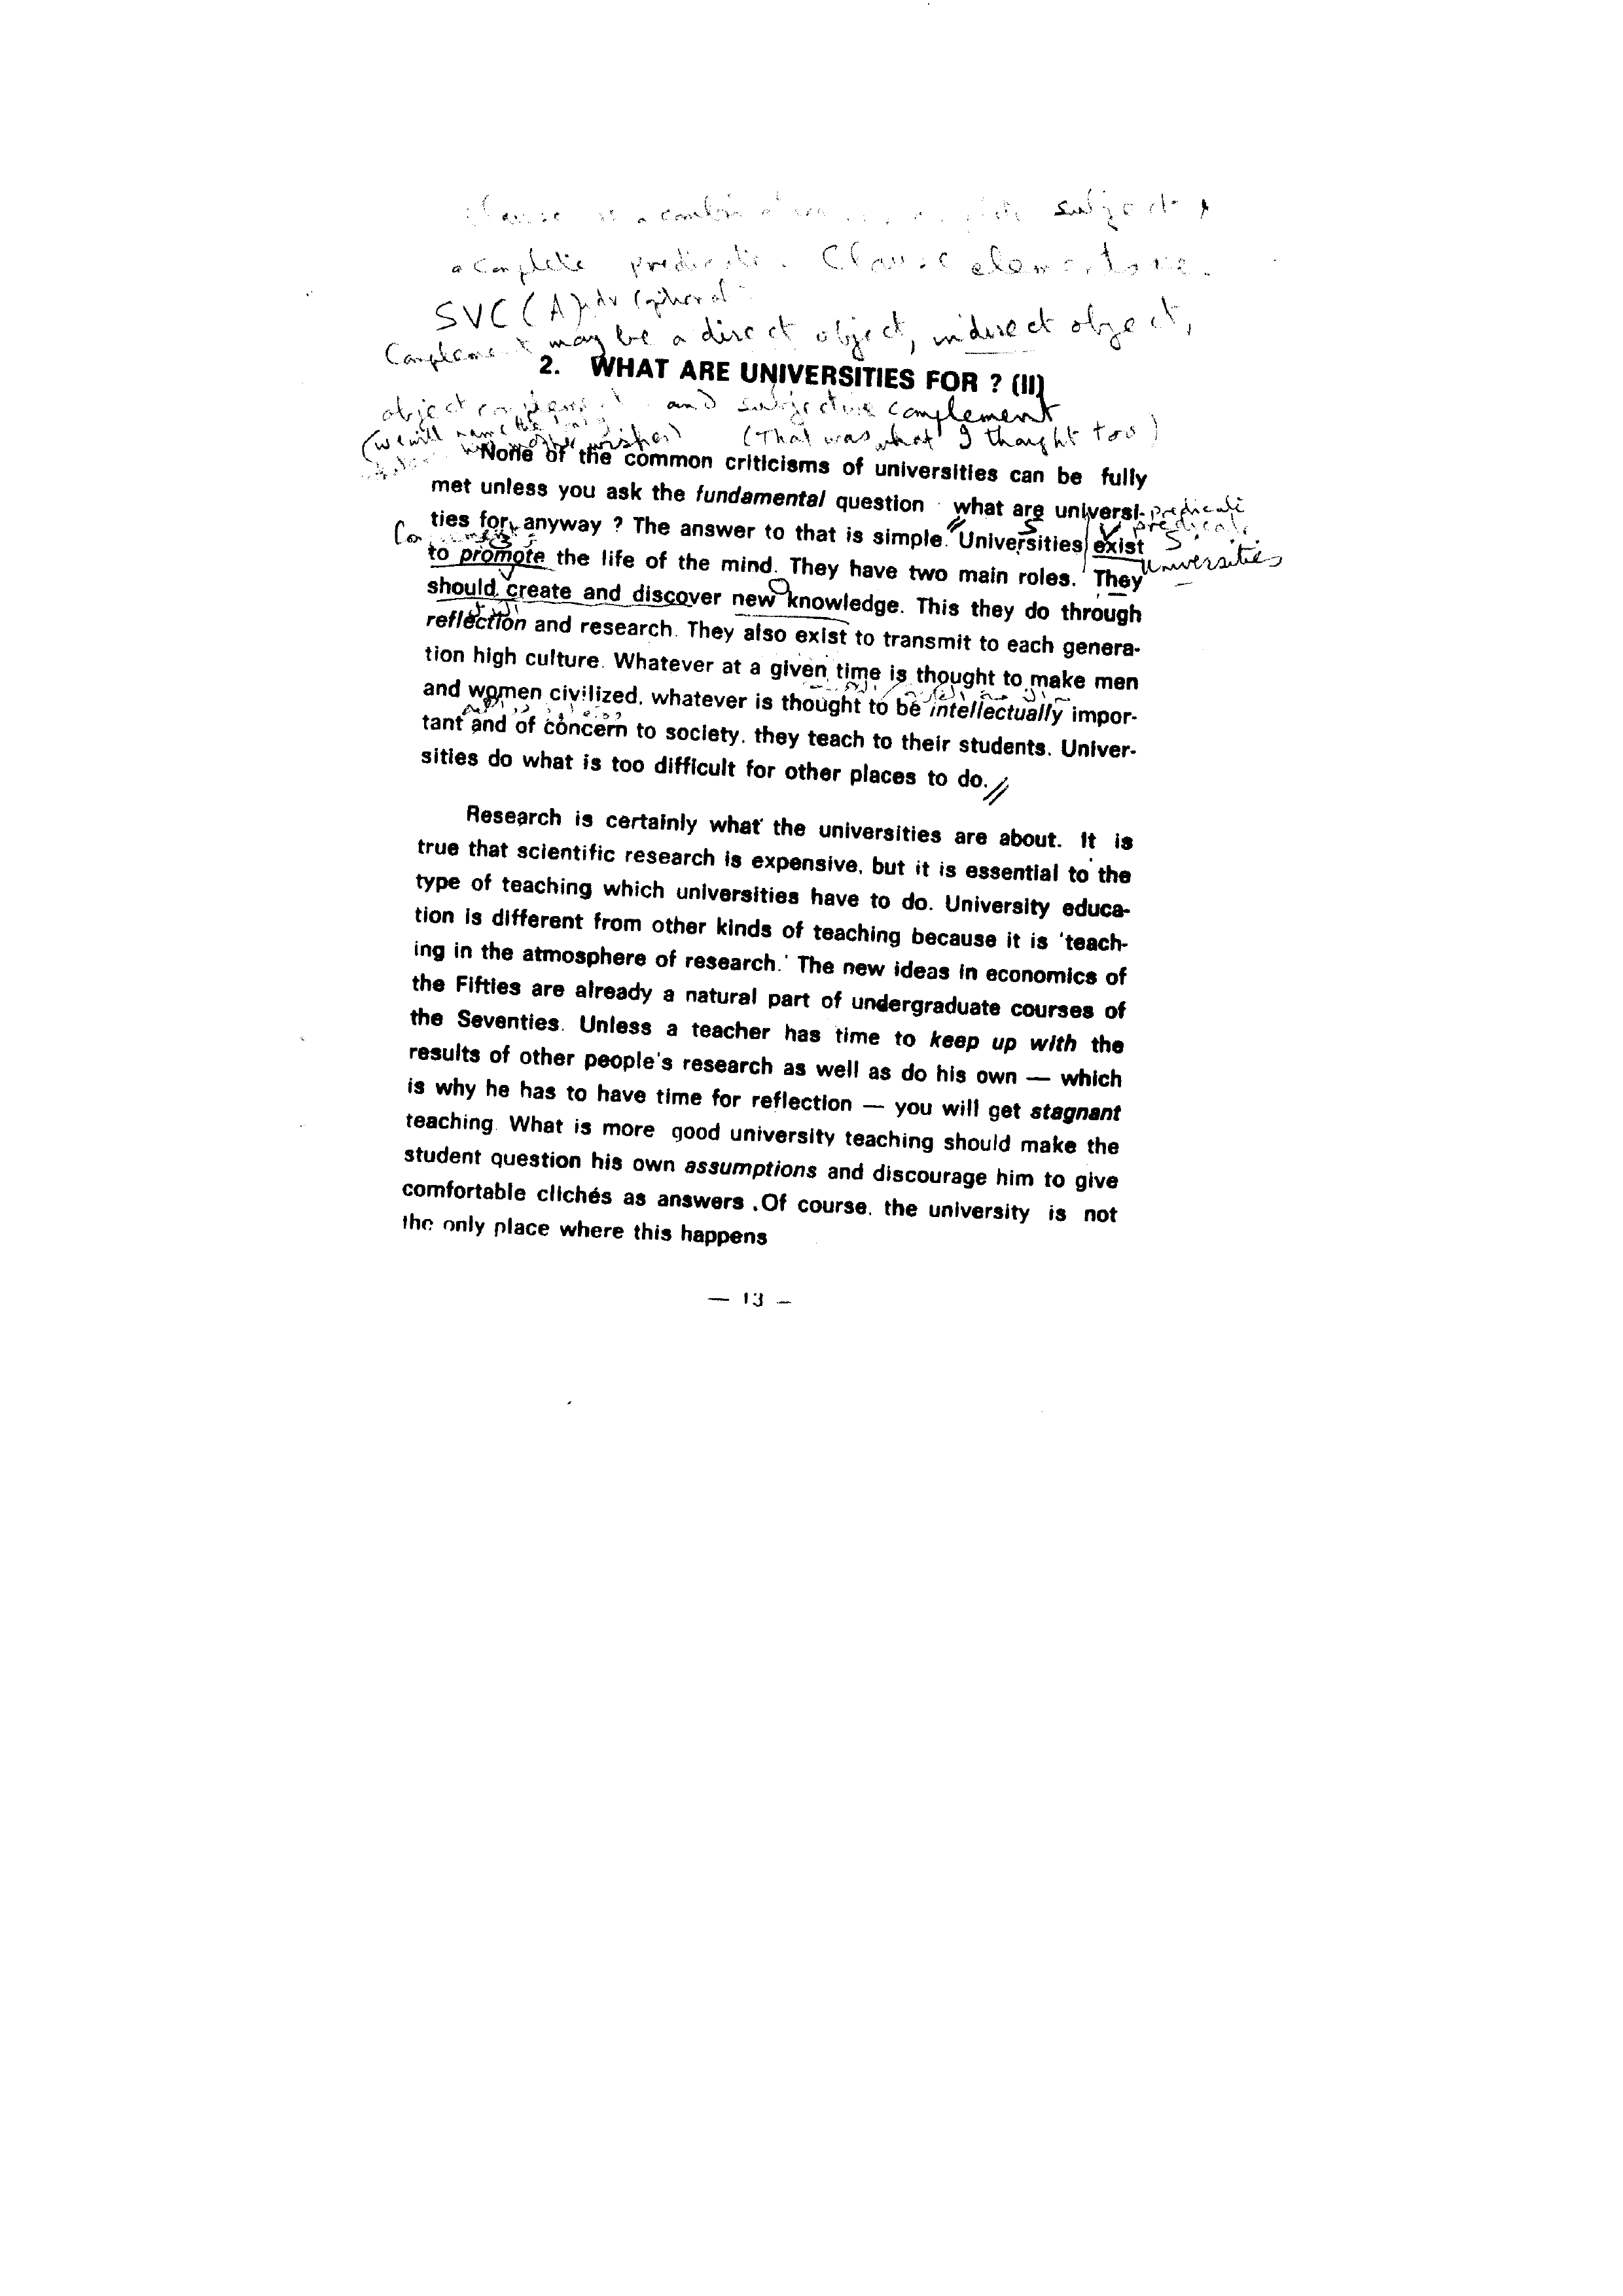 Clause is a combin subject &
a complete predicate. Clause elements are.
SVC (A)
Complement may be a direct object, indirect object,
2. WHAT ARE UNIVERSITIES FOR ? (II)
object complement and subjective complement
(we will name the
(That was what I thought too)
None of the common criticisms of universities can be fully
met unless you ask the fundamental question what are universi-
predicate
ties for, anyway ? The answer to that is simple. Universities exist
predicate
S V S
to promote the life of the mind. They have two main roles. They
Universities
should create and discover new knowledge. This they do through
reflection and research. They also exist to transmit to each genera-
tion high culture. Whatever at a given time is thought to make men
and women civilized, whatever is thought to be intellectually impor-
tant and of concern to society, they teach to their students. Univer-
sities do what is too difficult for other places to do.
Research is certainly what the universities are about. It is
true that scientific research is expensive, but it is essential to the
type of teaching which universities have to do. University educa-
tion is different from other kinds of teaching because it is 'teach-
ing in the atmosphere of research.' The new ideas in economics of
the Fifties are already a natural part of undergraduate courses of
the Seventies. Unless a teacher has time to keep up with the
results of other people's research as well as do his own — which
is why he has to have time for reflection — you will get stagnant
teaching. What is more good university teaching should make the
student question his own assumptions and discourage him to give
comfortable clichés as answers .Of course, the university is not
the only place where this happens
— 13 —